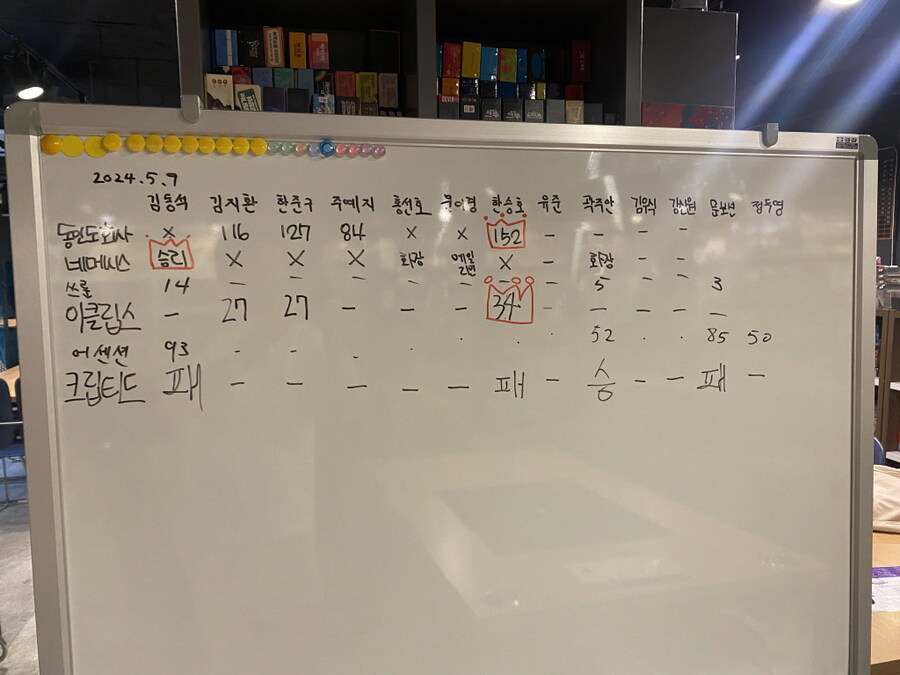 2024.5.9
김동석 김지환 한준구 주예지 홍선호 한승호 유준 곽주안 김우식 강신원 문보선 정두영
동인도회사 × 116 127 84 × × 152 - - - - -
네메시스 승리 × × × 화장 에일리언 × - 화장 - -
쓰룬 14 - - - - - - - 5 - - 3
이클립스 - 27 27 - - - 34 - - - - -
어센션 93 - - . . . . . 52 . . 85 50
크립티드 패 - - - - - 패 - 승 - - 패 -